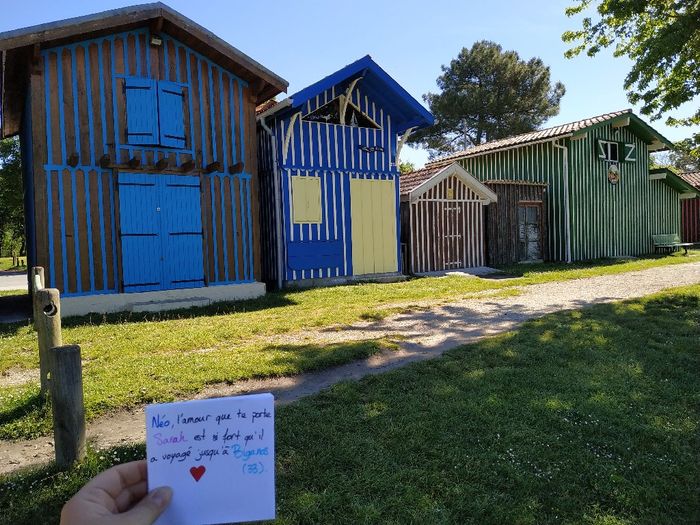 Néo, l'amour que te porte
Sarah est si fort qu'il
a voyagé jusqu'à Biganos
(33).